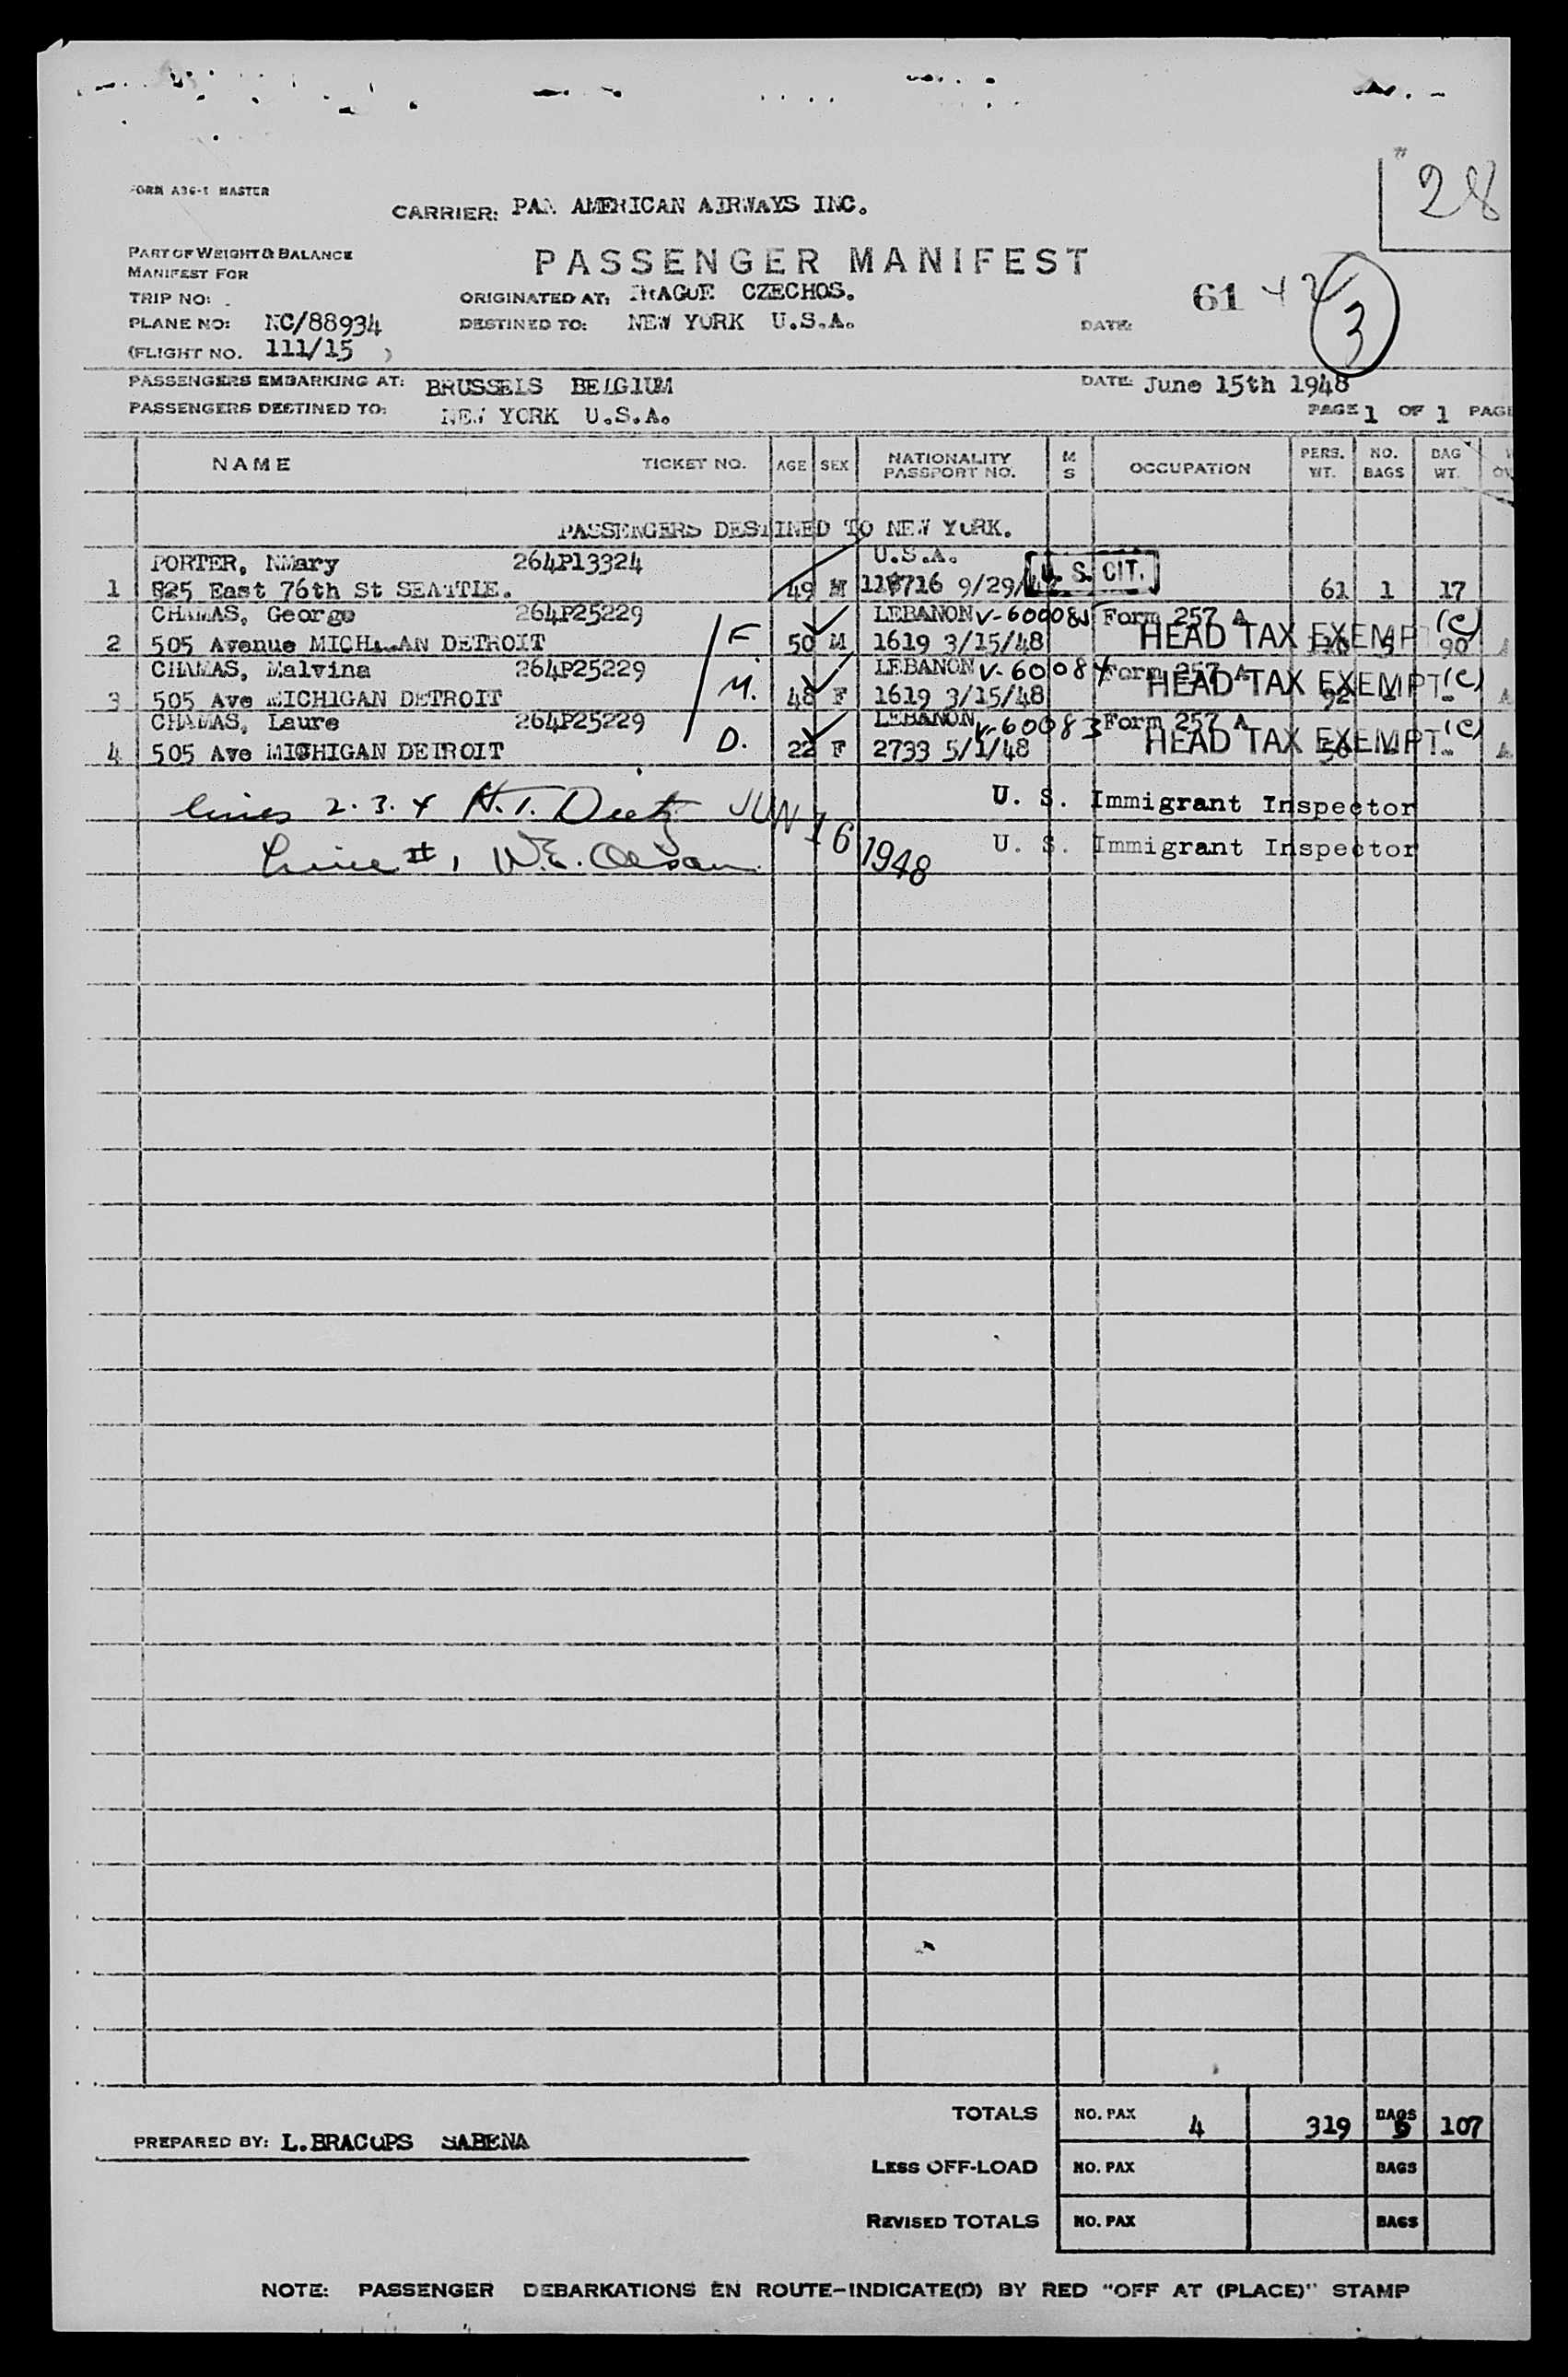 28
FORM A36-1 MASTER
CARRIER: PAN AMERICAN AIRWAYS INC.
PART OF WEIGHT & BALANCE
MANIFEST FOR
PASSENGER MANIFEST
TRIP NO:
ORIGINATED AT: PRAGUE CZECHOS.
61
3
PLANE NO: NC/88934
DESTINED TO: NEW YORK U.S.A.
DATE:
(FLIGHT NO. 111/15 )
PASSENGERS EMBARKING AT: BRUSSELS BELGIUM
DATE: June 15th 1948
PASSENGERS DESTINED TO: NEW YORK U.S.A.
PAGE 1 OF 1 PAGE
NAME TICKET NO. AGE SEX NATIONALITY PASSPORT NO. M S OCCUPATION PERS. WT. NO. BAGS BAG WT.
PASSENGERS DESTINED TO NEW YORK.
PORTER, NMary 264P13324 U.S.A. U. S. CIT.
1 825 East 76th St SEATTLE. 49 M 9/29/ 61 1 17
CHAMAS, George 264P25229 LEBANON Form 257 A (C)
2 505 Avenue DETROIT F. 50 M 1619 3/15/48 HEAD TAX EXEMPT 5 90
CHAMAS, Malvina 264P25229 LEBANON V-60084 Form 257 A
3 505 Ave MICHIGAN DETROIT M. 48 F 1619 3/15/48 HEAD TAX EXEMPT (C) 92 - -
CHAMAS, Laure 264P25229 LEBANON V-60083 Form 257 A (C)
4 505 Ave MICHIGAN DETROIT D. 22 F 2733 5/1/48 HEAD TAX EXEMPT. - -
lines 2. 3. 4 H.T. Dietz JUN 16 1948 U. S. Immigrant Inspector
Line # 1 W.E. Olson U. S. Immigrant Inspector
TOTALS NO. PAX 4 319 BAGS 6 107
PREPARED BY: L.BRACOPS SABENA
LESS OFF-LOAD NO. PAX BAGS
REVISED TOTALS NO. PAX BAGS
NOTE: PASSENGER DEBARKATIONS EN ROUTE-INDICATE(D) BY RED "OFF AT (PLACE)" STAMP